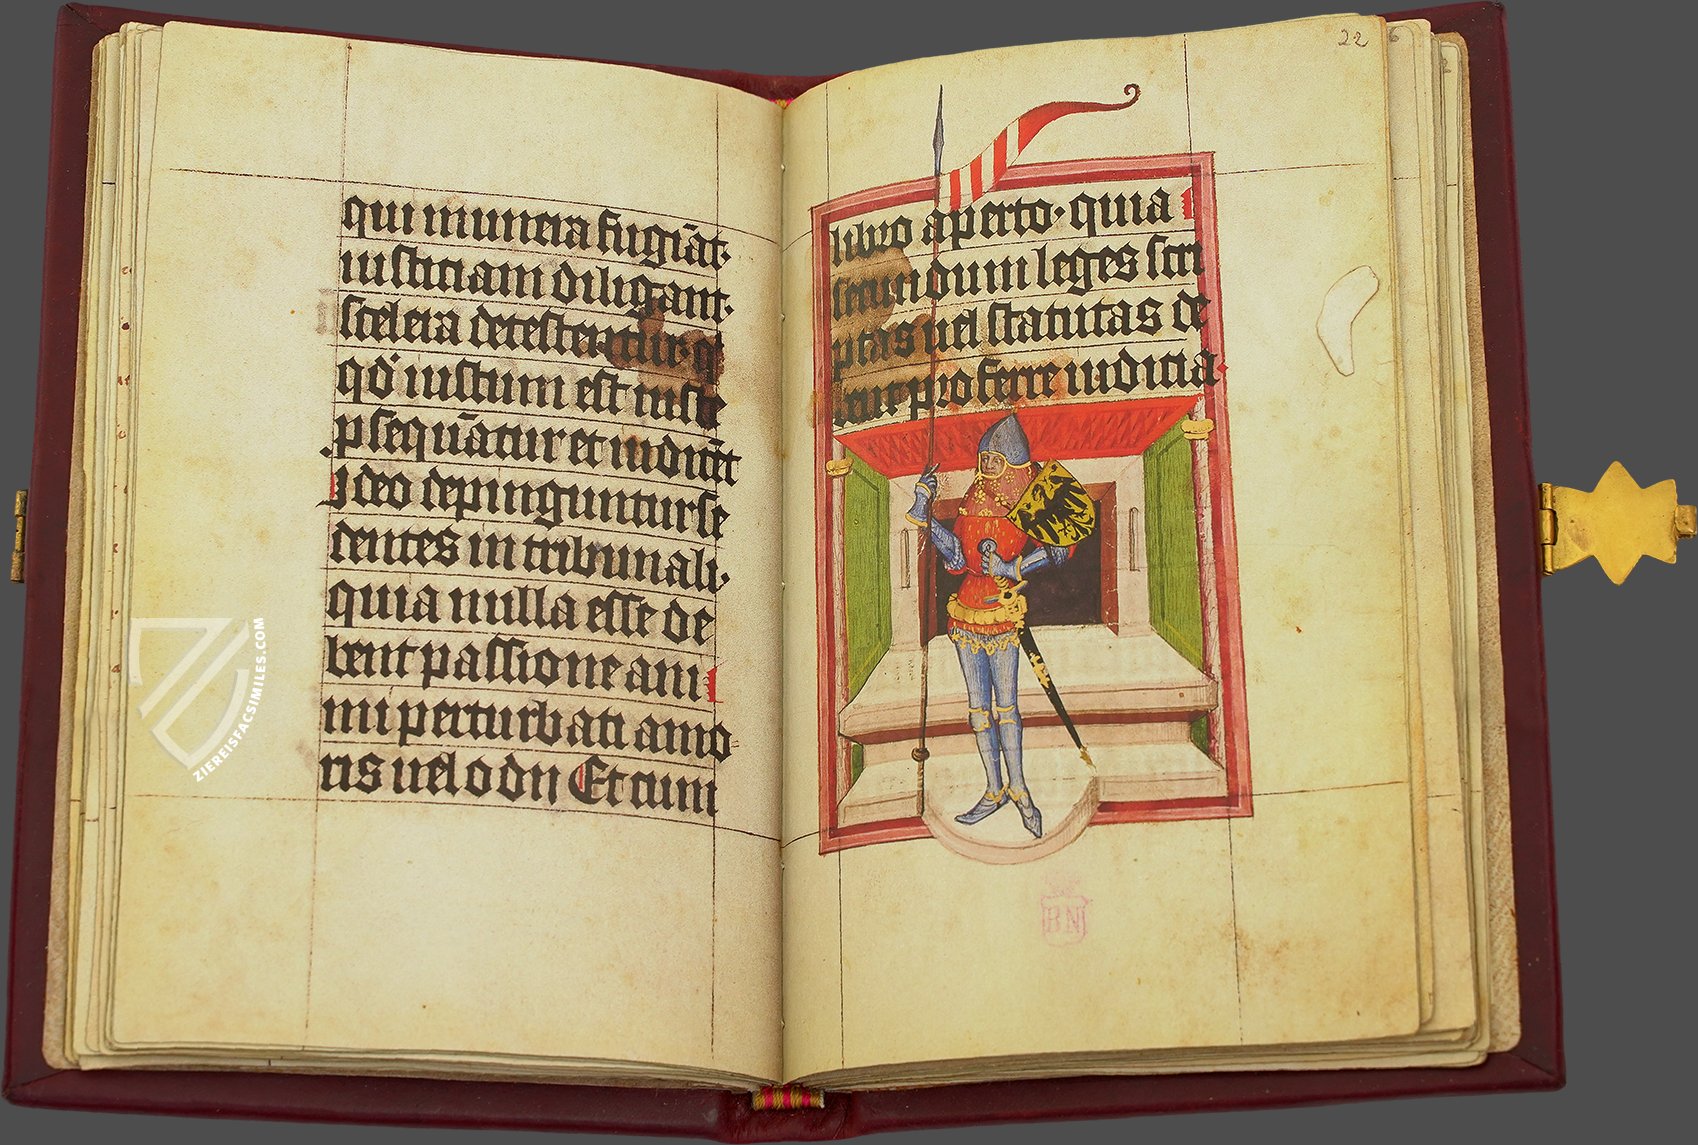 qui munera fugiāt·
iusticiam diligant·
scelera detestentur· q̄
qd̄ iustum est iuste
psequāatur et iudicēt
Ideo depinguntur se
dentes in tribunali·
quia nulla esse de
bent passione ani
mi perturbati amo
ris uel odij Et cum
22
libro aperto· quia
secundum leges scri
ptas uel statutas de
bent pro ferre iudicia·
BN
ZIEREISFACSIMILES.COM